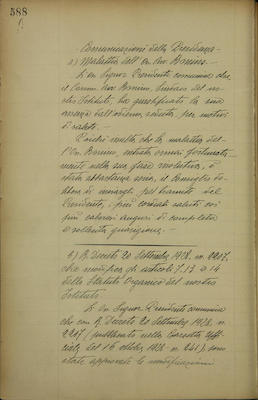 588
Comunicazioni della Presidenza
a) Malattia dell'On. Avv. Bonino. —
L'On. Signor Presidente comunica che
il Comm. Avv. Bonino, Sindaco del
nostro Istituto, ha giustificato la sua
assenza dall'odierna seduta, per motivi
di salute. —
Poichè risulta che la malattia del-
l'On. Bonino, entrata ormai fortunata-
mente nella sua fase risolutiva, è
stata abbastanza seria, il Consiglio de-
libera di inviargli pel tramite del
Presidente, i più cordiali saluti coi
più calorosi auguri di completa
e sollecita guarigione. —
b) R. Decreto 20 Settembre 1928. n. 2247.
che modifica gli articoli 7. 13. e 14
dello Statuto Organico del nostro
Istituto.
L'On. Signor Presidente comunica
che con R. Decreto 20 Settembre 1928. n.
2247 (pubblicato nella Gazzetta Uffi-
ciale del 16 ottobre 1928 - n. 241), sono
state approvate le modificazioni